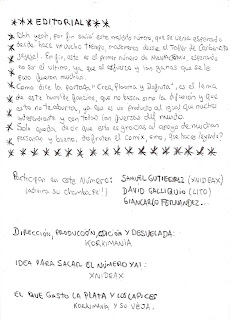 ***EDITORIAL***
Ohh yeah, por fin salió este maldito número, que se venía esperando
desde hace un mucho tiempo, maduremos desde el Taller de Carboncito
. En fin, este es el primer número de , esperando
no ser el último, ya que el esfuerzo y las ganas que se le
puso fueron muchas.
Como dice la portada "Crea, Plasma y Disfruta", es el lema
de este humilde fanzine, que no busca sino la difusión y que
esto no te aburra, ya que es un producto al igual que muchos
independiente y con todas las fuerzas del mundo.
Solo queda decir que esto es gracias al apoyo de muchas
personas y bueno, disfruten el comix, sino, que hace leyendo?
Participan en este número:
(admira su chamba pe'!)
SAMUEL GUTIERREZ (XNIDEAX)
DAVID GALLIQUIO (LITO)
GIANCARLO FERNANDEZ.
DIRECCIÓN, PRODUCCIÓN, EDICIÓN Y DESVELADA:
KORKIMANIA
IDEA PARA SACAR EL NÚMERO YA!:
XNIDEAX
EL QUE GASTO LA PLATA Y LOS LAPICES
KORKIMANIA Y SU VIEJA.